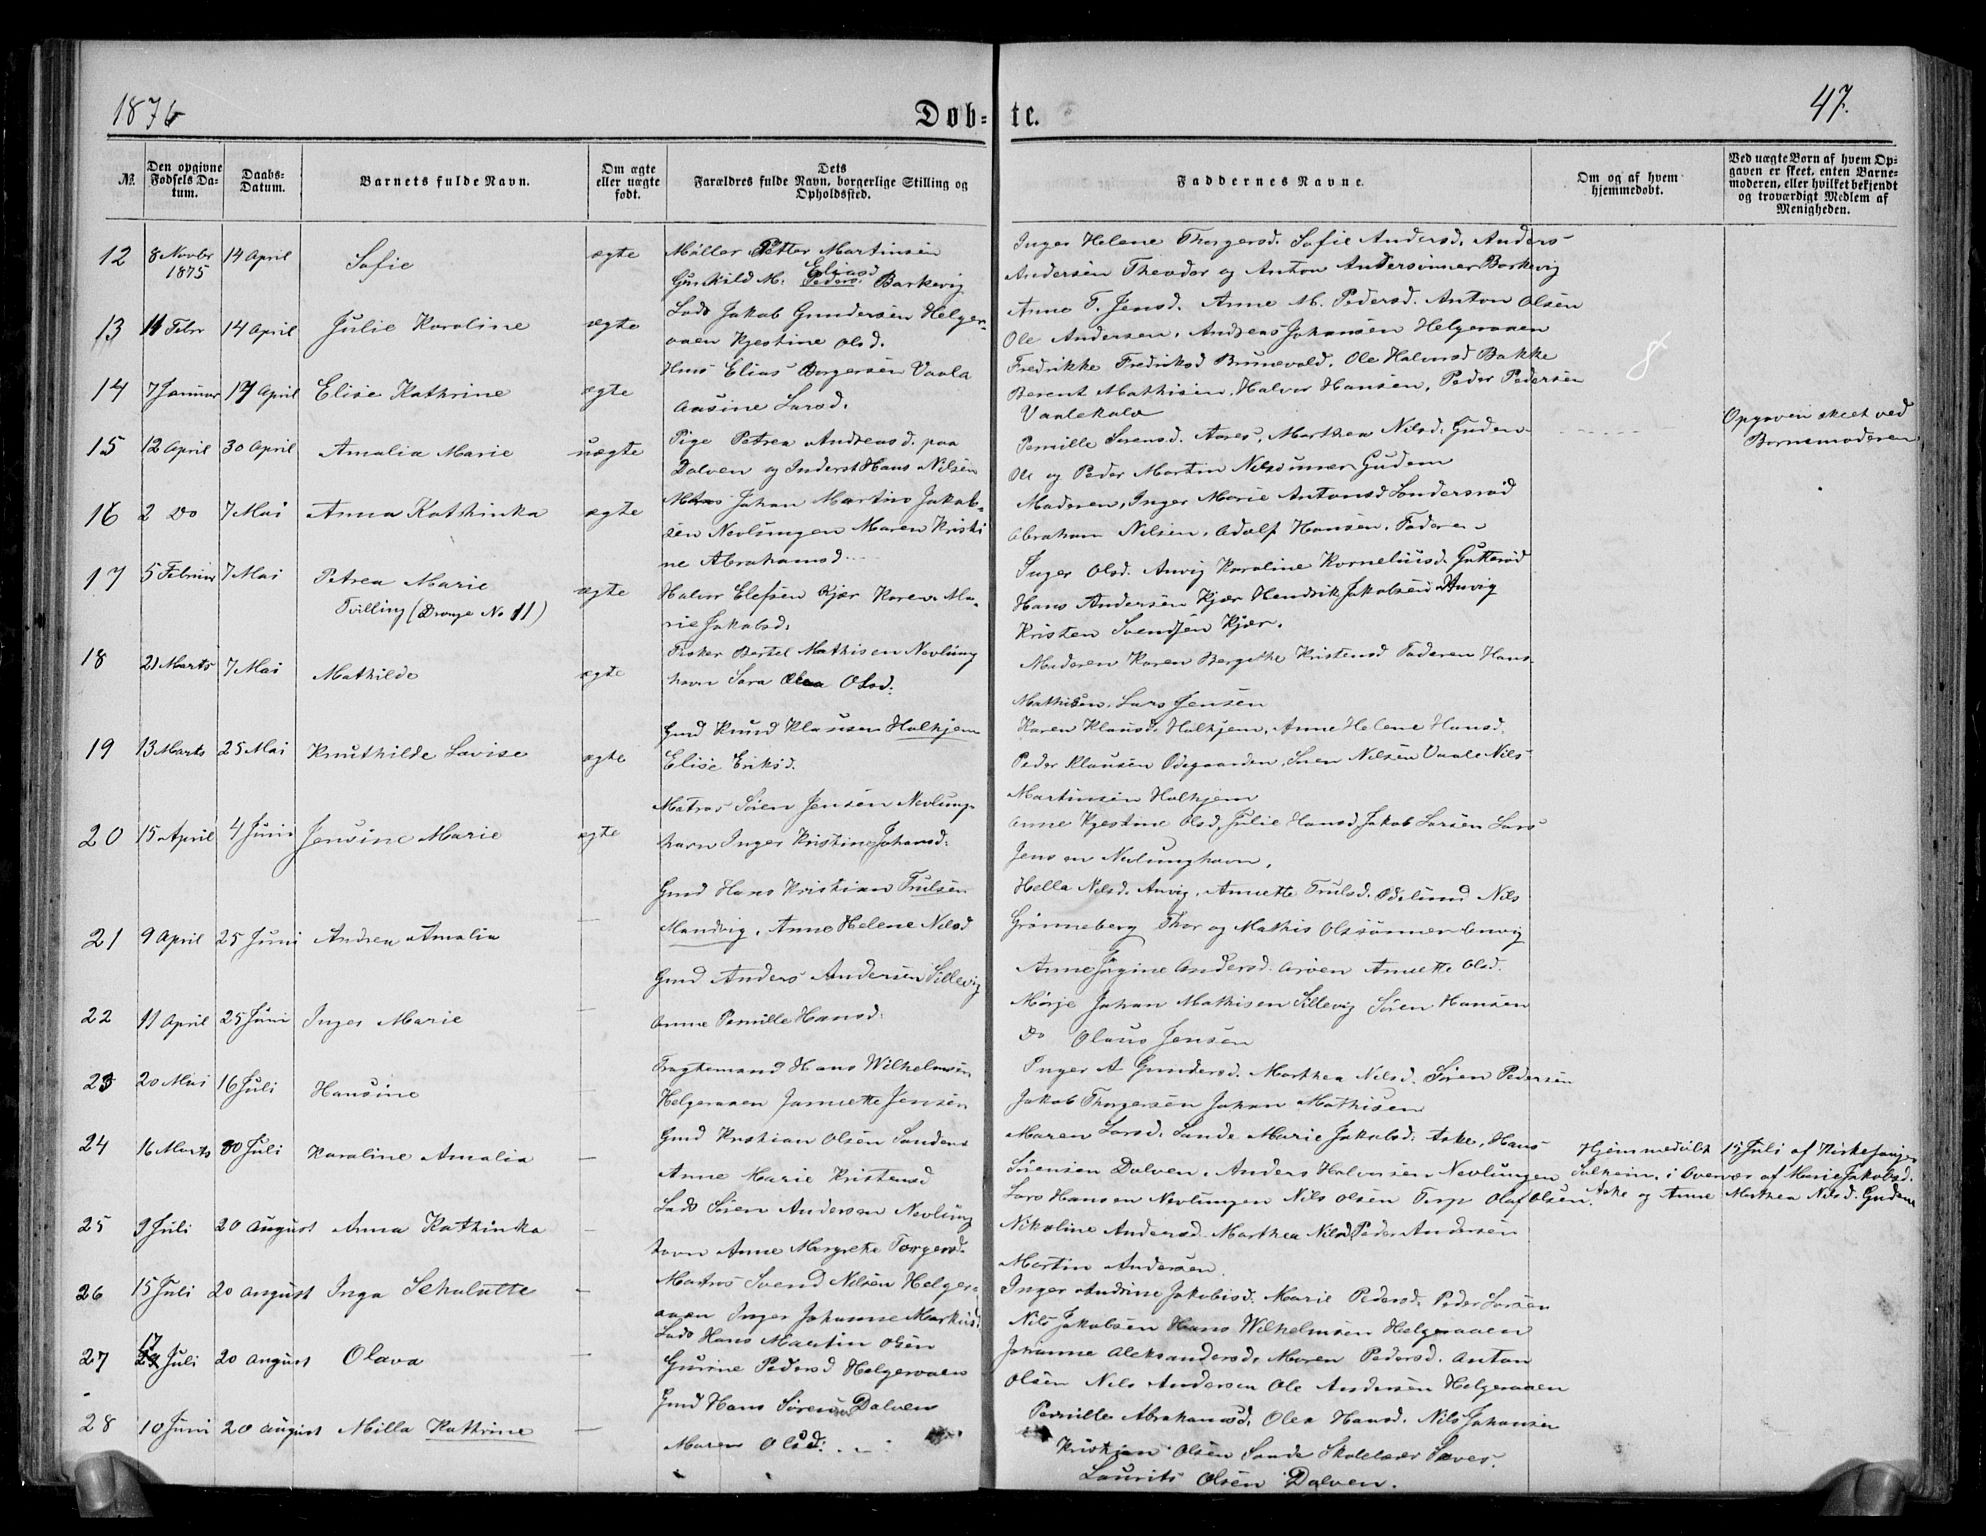 1876
Døb-
te.
47.
№.
Den opgivne Fødsels Da- tum.
Daabs- Datum.
Barnets fulde Navn.
Om ægte eller uægte født.
Dets Forældres fulde Navn, borgerlige Stilling og Opholdssted.
Faddernes Navne.
Om og af hvem hjemmedøbt.
Ved uægte Børn af hvem Op- gaven er skeet, enten Barne- moderen, eller hvilket bekjendt og troværdigt Medlem af Menigheden.
12 8 Novbr 1875 14 April Sofie ægte
Møller Petter Martinsen
Gunhild M. Eliasd Peders. Barkevig
Inger Helene Thorgersd. Sofie Andersd. Anders
Andersen Theodor og Anton Anderssønner Barkevig
13 11 Febr 14 April Julie Karoline ægte
Lods Jakob Gundersen Helger-
aaen Kjestine Olsd.
Anne T. Jensd. Anne M. Pedersd. Anton Olsen
Ole Andersen, Andreas Johansen Helgeraaen
14 7 Januar 17 April Elise Kathrine ægte
Hms Elias Borgersen Vaala
Aasine Larsd.
Fredrikke Fredriksd Brunevald. Ole Halvorsd Bakke
Berent Mathisen, Halvor Hansen, Peder Pedersen
15 12 April 30 April Amalia Marie uægte
Pige Petrea Andreasd. paa
Dalven og Inderst Hans Nilsen
Pernille Sørensd. Aares, Marthea Nilsd. Gudem
Ole og Peder Martin Nilssønner Gudem
Opgaven skeet ved
Barnemoderen
16 2 Do 7 Mai Anna Kathinka ægte
Matros Johan Martins Jakob-
sen Nevlungen Maren Kristi
ne Abrahamsd.
Moderen, Inger Marie Antonsd Søndersrød
Abraham Nilsen, Adolf Hansen, Faderen
17 5 Februar 7 Mai Petrea Marie ægte
Tvilling (Drenge No 11)
Halvor Elefsen Kjær Karen Ma-
rie Jakobsd.
Inger Olsd. Anvig Karoline Korneliusd. Gutterød
Hans Andersen Kjær Hendrik Jakobsen Anvig
Kristen Svendsen Kjær.
18 21 Marts 7 Mai Mathilde ægte
Fisker Bertel Mathisen Nevlung
havn Sara Olea Olsd.
Moderen Karen Bergithe Kristensd Faderen Hans
Mathisen, Lars Jensen
19 13 Marts 25 Mai Knuthilde Lovise ægte
Gmd Knud Klausen Halhjem
Elise Eriksd.
Karen Klausd. Halhjem, Anne Helene Hansd.
Peder Klausen Ødegaarden, Søren Nilsen Vaale Nils
Martinsen Halhjem
20 15 April 4 Juni Jensine Marie ægte
Matros Søren Jensen Nevlung-
havn Inger Kristine Johansd.
Anne Kjestine Olsd, Julie Hansd, Jakob Larsen Lars
Jensen Nevlunghavn.
21 9 April 25 Juni Andrea Amalia —
Gmd Hans Kristian Trulsen
Mandvig, Anne Helene Nilsd
Hella Nilsd. Anvig, Annette Trulsd. Ødelund Nils
Grønneberg Thor og Mathis Olssønner Anvig
22 11 April 25 Juni Inger Marie —
Gmd Anders Andersen Sillevig
Anne Pernille Hansd.
Anne Jørgine Andersd. Arøen Annette Olsd.
Mørje Johan Mathisen Sillevig Søren Hansen
Do Olaus Jensen
23 20 Mai 16 Juli Hansine —
Fragtemand Hans Wilhelmsen
Helgeraaen Jannette Jensen
Inger A Gundersd. Marthea Nilsd. Søren Pedersen
Jakob Thorgersen Johan Mathisen
24 16 Marts 30 Juli Karoline Amalia —
Gmd Kristian Olsen Sanden
Anne Marie Kristensd
Maren Larsd. Sande Marie Jakobsd. Aske, Hans
Sørensen Dalven, Anders Halvorsen Nevlungen
Lars Hansen Nevlungen Nils Olsen Terp Olaf Olsen.
Hjemmedøbt 15 Juli af Kirkesanger
Solheim, i Overvær af Marie Jakobsd.
Aske og Anne Mathea Nilsd. Gudem
25 9 Juli 20 August Anna Kathinka —
Lods Søren Andersen Nevlung
havn Anne Margrethe Torgersd.
Nikoline Andersd. Marthea Nilsd Peder Andersen
Martin Andersen.
26 15 Juli 20 August Inga Schalutte —
Matros Svend Nilsen Helger-
aaen Inger Johanne Markusd.
Inger Andrine Jakobsd. Marie Pedersd. Peder Larsen
Nils Jakobsen Hans Wilhelmsen Helgeraaen
27 17 Juli 20 August Olava
Lods Hans Martin Olsen
Gurine Pedersd Helgeraaen
Johanne Aleksandersd. Maren Pedersd. Anton
Olsen Nils Andersen Ole Andersen Helgeraaen
28 10 Juni 20 August Milla Kathrine —
Gmd Hans Sørensen Dalven
Maren Olsd.
Pernille Abrahamsd. Olea Hansd. Nils Johansen
Kristjan Olsen Sande Skolelærer Saves.
Laurits Olsen Dalven.